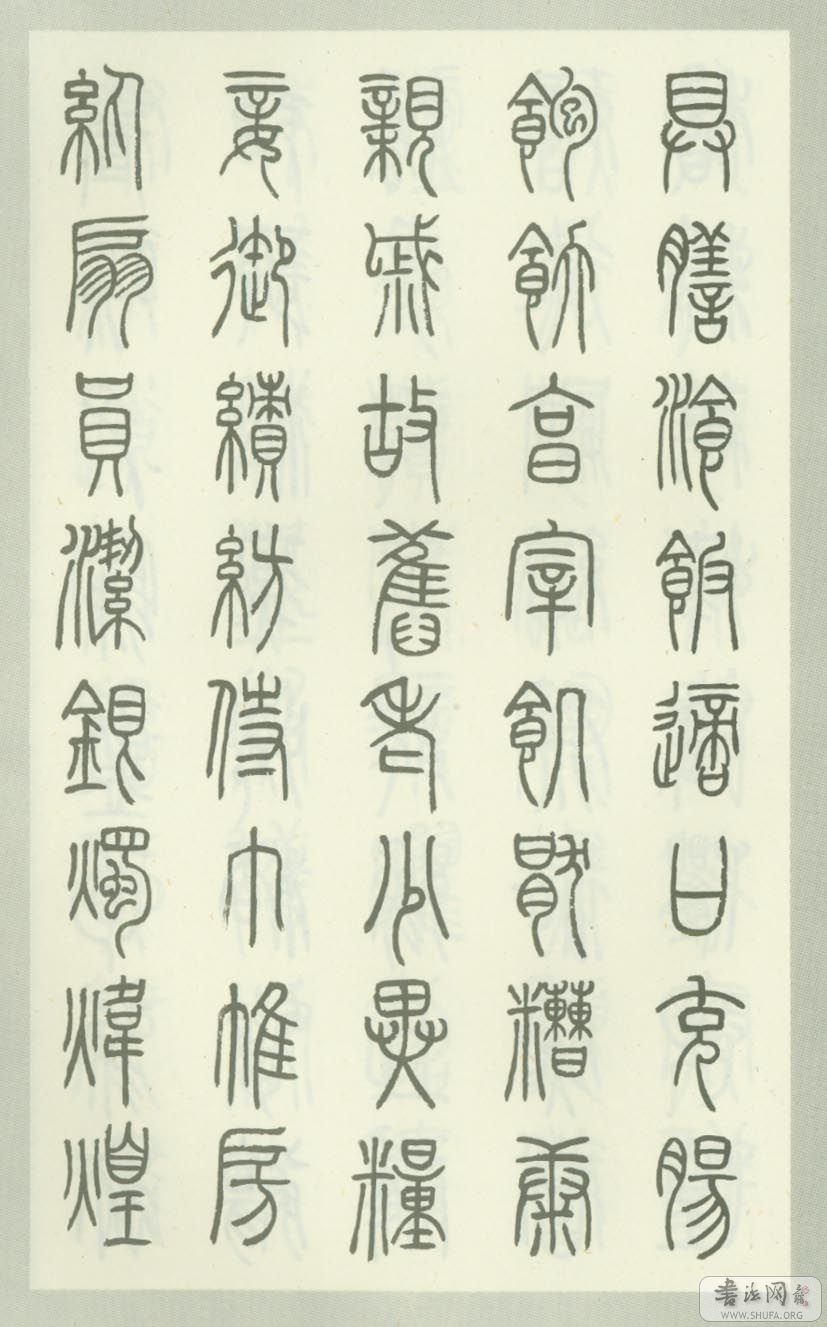 具膳湌飯適口充腸
飽飫亯宰飢猒糟康
親戚故舊老少異糧
妾御績紡侍巾帷房
紈扇員潔銀燭煒煌
書法网
WWW.SHUFA.ORG